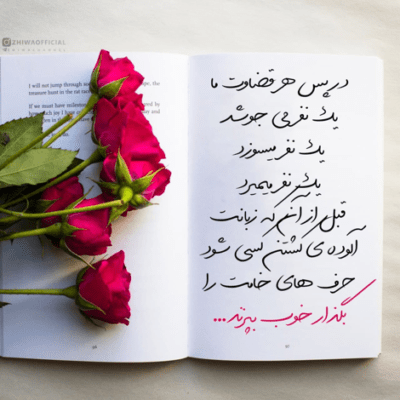 @ZHIWAOFFICIAL
I will not jump through
the
treasure hunt to the
If we must have
by
each joy I
and
در پس هر قضاوت ما
یک نفر می جوشد
یک نفر میسوزد
یک نفر میمیرد
قبل از آنکه زبانت
آلوده ی کشتن کسی شود
حرف های خامت را
بگذار خوب بپزند...